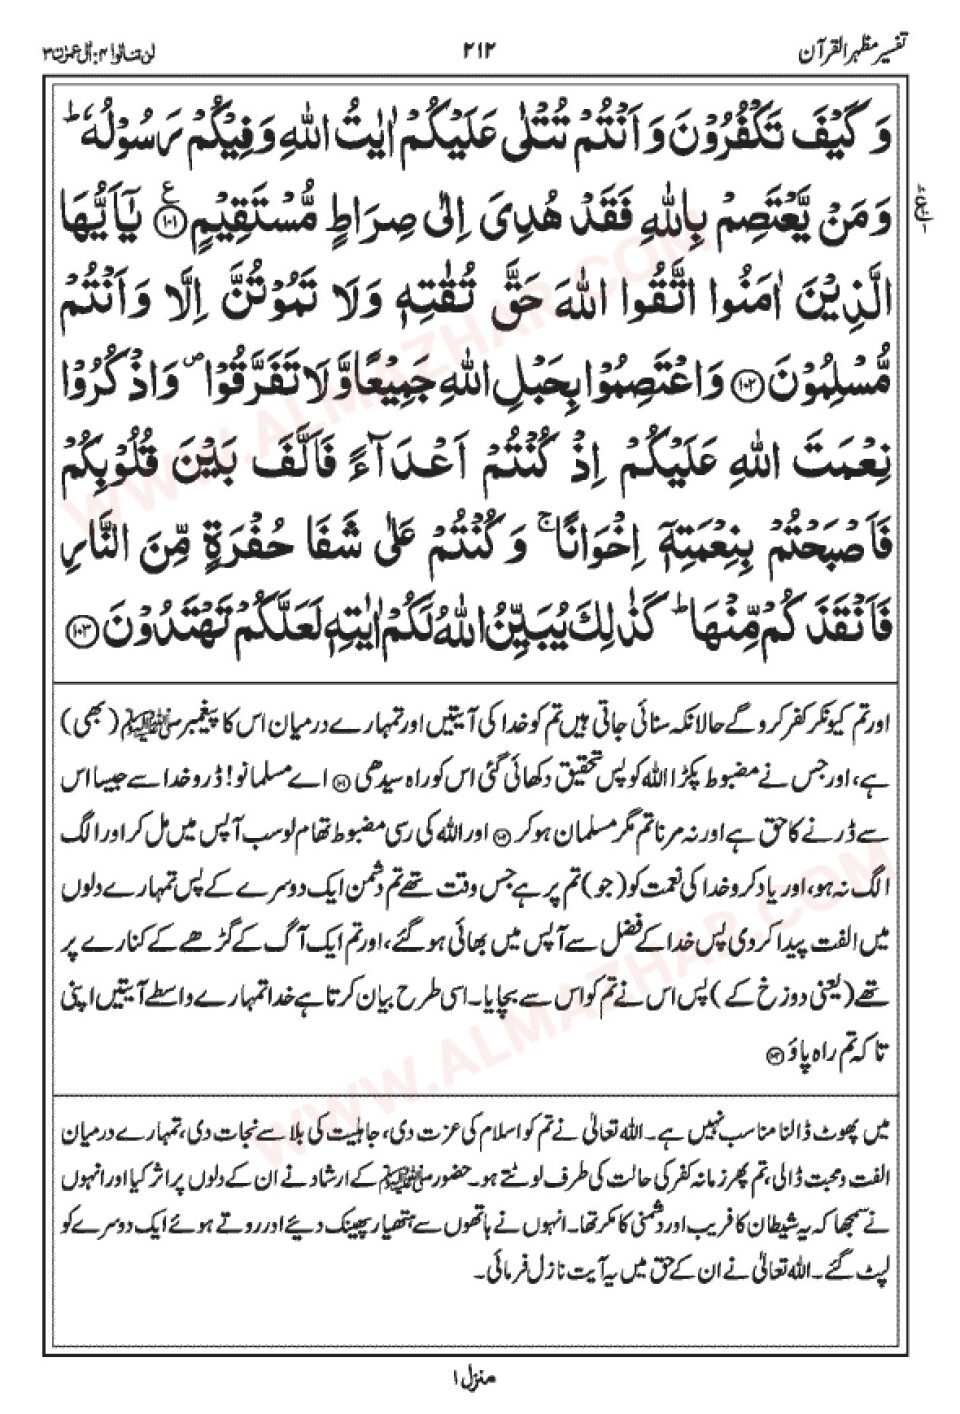 تفسیر مظہر القرآن
۲۱۲
لن تنالوا ۴: آل عمرٰن ۳
وَ كَیْفَ تَكْفُرُوْنَ وَ اَنْتُمْ تُتْلٰى عَلَیْكُمْ اٰیٰتُ اللّٰهِ وَ فِیْكُمْ رَسُوْلُهٗ ؕ
وَ مَنْ یَّعْتَصِمْ بِاللّٰهِ فَقَدْ هُدِیَ اِلٰى صِرَاطٍ مُّسْتَقِیْمٍ ﴿۱۰۱﴾ ع یٰۤاَیُّهَا
الَّذِیْنَ اٰمَنُوا اتَّقُوا اللّٰهَ حَقَّ تُقٰتِهٖ وَ لَا تَمُوْتُنَّ اِلَّا وَ اَنْتُمْ
مُّسْلِمُوْنَ ﴿۱۰۲﴾ وَ اعْتَصِمُوْا بِحَبْلِ اللّٰهِ جَمِیْعًا وَّ لَا تَفَرَّقُوْا ۪ وَ اذْكُرُوْا
نِعْمَتَ اللّٰهِ عَلَیْكُمْ اِذْ كُنْتُمْ اَعْدَآءً فَاَلَّفَ بَیْنَ قُلُوْبِكُمْ
فَاَصْبَحْتُمْ بِنِعْمَتِهٖۤ اِخْوَانًا ۚ وَ كُنْتُمْ عَلٰى شَفَا حُفْرَةٍ مِّنَ النَّارِ
فَاَنْقَذَكُمْ مِّنْهَا ؕ كَذٰلِكَ یُبَیِّنُ اللّٰهُ لَكُمْ اٰیٰتِهٖ لَعَلَّكُمْ تَهْتَدُوْنَ ﴿۱۰۳﴾
اور تم کیونکر کفر کرو گے حالانکہ سنائی جاتی ہیں تم کو خدا کی آیتیں اور تمہارے درمیان اس کا پیغمبر ﷺ (بھی)
ہے، اور جس نے مضبوط پکڑا اللہ کو پس تحقیق دکھائی گئی اس کو راہ سیدھی ﴿۱۰۱﴾ اے مسلمانو! ڈرو خدا سے جیسا اس
سے ڈرنے کا حق ہے اور نہ مرنا تم مگر مسلمان ہو کر ﴿۱۰۲﴾ اور اللہ کی رسی مضبوط تھام لو سب آپس میں مل کر اور الگ
الگ نہ ہو، اور یاد کرو خدا کی نعمت کو (جو) تم پر ہے جس وقت تھے تم دشمن ایک دوسرے کے پس تمہارے دلوں
میں الفت پیدا کر دی پس خدا کے فضل سے آپس میں بھائی ہو گئے، اور تم ایک آگ کے گڑھے کے کنارے پر
تھے (یعنی دوزخ کے) پس اس نے تم کو اس سے بچایا۔ اسی طرح بیان کرتا ہے خدا تمہارے واسطے آیتیں اپنی
تاکہ تم راہ پاؤ ﴿۱۰۳﴾
میں پھوٹ ڈالنا مناسب نہیں ہے۔ اللہ تعالیٰ نے تم کو اسلام کی عزت دی، جاہلیت کی بلا سے نجات دی، تمہارے درمیان
الفت و محبت ڈالی، تم پھر زمانہ کفر کی حالت کی طرف لوٹتے ہو۔ حضور ﷺ کے ارشاد نے ان کے دلوں پر اثر کیا اور انہوں
نے سمجھا کہ یہ شیطان کا فریب اور دشمنی کا مکر تھا۔ انہوں نے ہاتھوں سے ہتھیار پھینک دیئے اور روتے ہوئے ایک دوسرے کو
لپٹ گئے۔ اللہ تعالیٰ نے ان کے حق میں یہ آیت نازل فرمائی۔
منزل ۱
WWW.ALMAZHAR.COM
WWW.ALMAZHAR.COM